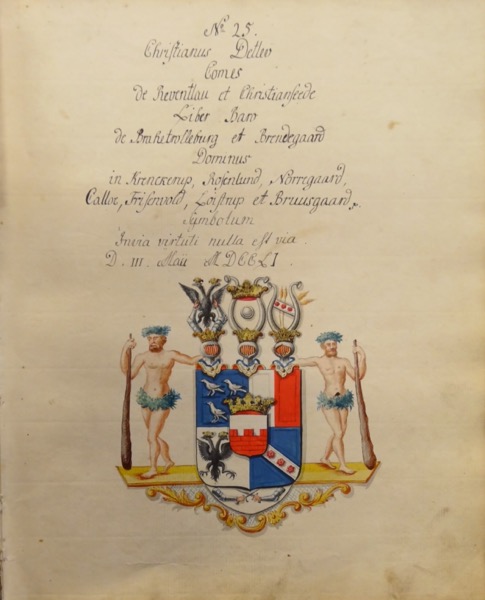 No. 25.
Christianus Detlev
Comes
de Reventlau et Christianseede
Liber Baro
de Brahetrolleburg et Brendegaard
Dominus
in Krenckerup, Rosenlund, Nörregaard,
Calløe, Frisenvold, Loistrup et Bruusgaard,
Symbolum
Invia virtuti nulla est via.
D. III. Maii MDCCLI.